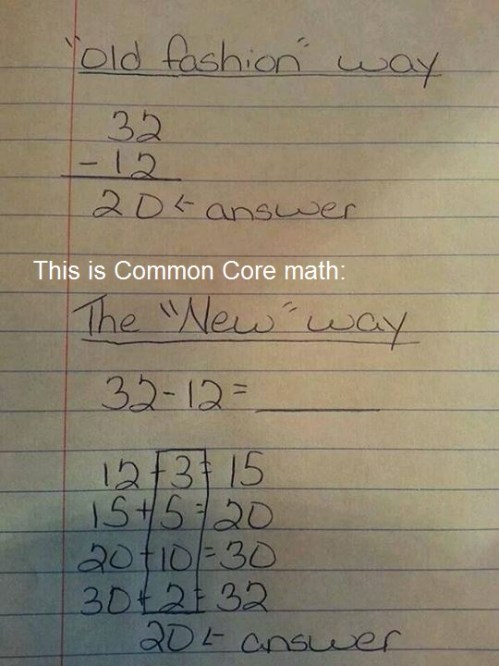 "old fashion" way
32
- 12
20 ← answer
This is Common Core math:
The "New" way
32-12= ____
12+3=15
15+5=20
20+10=30
30+2=32
20 ← answer